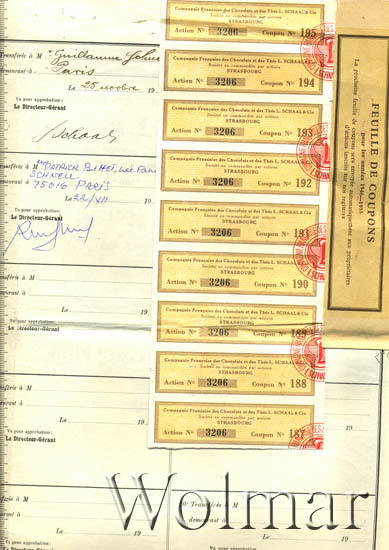 Transférée à M Guillaume
demeurant à Paris
Le 25 octobre 19
Vu pour approbation :
Le Directeur-Gérant
Schaal
SCHNELL
75016 PARIS
Le 19
Vu pour approbation :
Le Directeur-Gérant
Transférée à M
demeurant à
Le 19
Vu pour approbation :
Le Directeur-Gérant
Transférée à M
demeurant à
Le 19
Vu pour approbation :
Le Directeur-Gérant
Transférée à M
demeurant à
Le
Vu pour approbation :
Le Directeur-Gérant
Compagnie Française des Chocolats et des Thés L. SCHAAL & Cie
Société en commandite par actions
STRASBOURG
Action No 3206 Coupon No 195
Compagnie Française des Chocolats et des Thés L. SCHAAL & Cie
Société en commandite par actions
STRASBOURG
Action No 3206 Coupon No 194
Compagnie Française des Chocolats et des Thés L. SCHAAL & Cie
Société en commandite par actions
STRASBOURG
Action No 3206 Coupon No 193
Compagnie Française des Chocolats et des Thés L. SCHAAL & Cie
Société en commandite par actions
STRASBOURG
Action No 3206 Coupon No 192
Compagnie Française des Chocolats et des Thés L. SCHAAL & Cie
Société en commandite par actions
STRASBOURG
Action No 3206 Coupon No 191
Compagnie Française des Chocolats et des Thés L. SCHAAL & Cie
Société en commandite par actions
STRASBOURG
Action No 3206 Coupon No 190
Compagnie Française des Chocolats et des Thés L. SCHAAL & Cie
Société en commandite par actions
STRASBOURG
Action No 3206 Coupon No 189
Compagnie Française des Chocolats et des Thés L. SCHAAL & Cie
Société en commandite par actions
STRASBOURG
Action No 3206 Coupon No 188
Compagnie Française des Chocolats et des Thés L. SCHAAL & Cie
Société en commandite par actions
STRASBOURG
Action No 3206 Coupon No 187
Le 19
Transférée à M
demeurant à
Le 19
FEUILLE DE COUPONS
pour les années 1946-1955
La prochaine feuille de coupons sera envoyée automatiquement aux propriétaires
d'actions inscrits sur nos registres
Wolmar